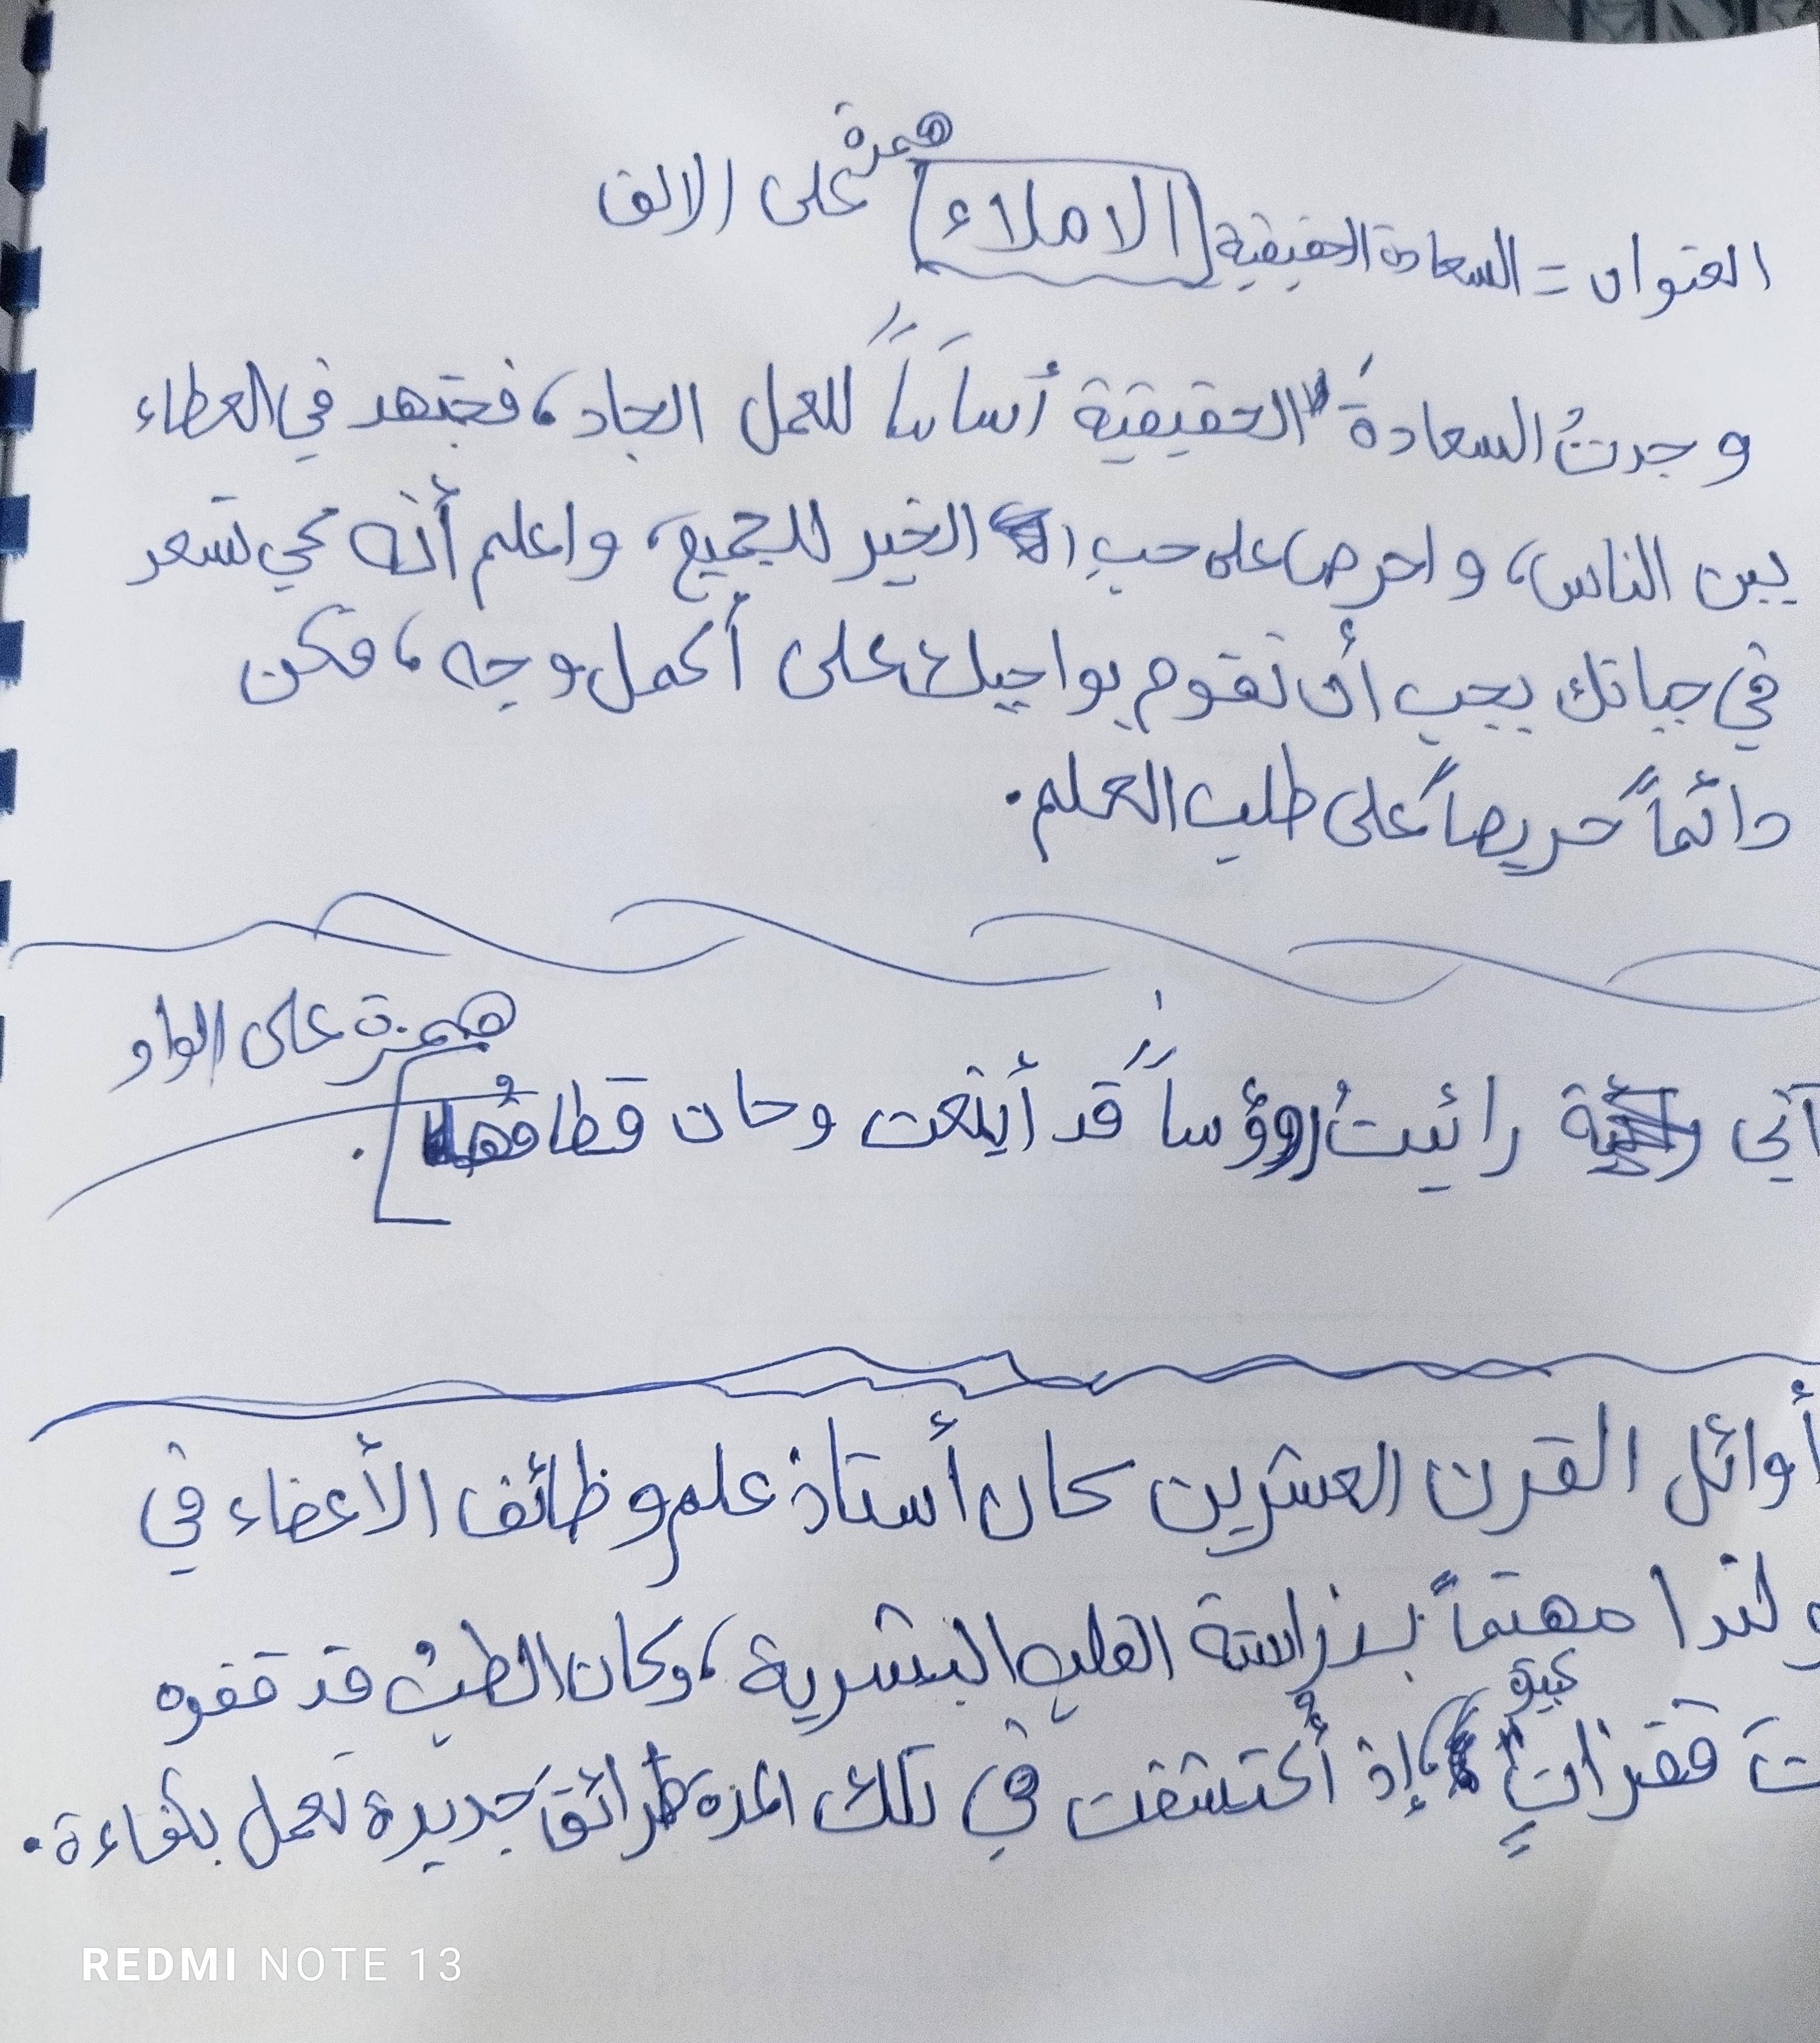 همزة على الالف
العنوان = السعادة الحقيقية الاملاء
وجدتُ السعادةَ الحقيقية أساساً للعمل الجاد، فجتهد في العطاء
بين الناس، واحرص على حبِ الخير للجميع، واعلم أنه لكي تسعد
في حياتك يجب أن تقوم بواجبك على أكمل وجه، فكن
دائماً حريصاً على طلب العلم.
همزة على الواو
آتي رائيتُ رؤوساً قد أينعت وحان قطافُها.
أوائل القرن العشرين كان أستاذ علم وظائف الأعضاء في
ولندا مهتماً بدراسة القلب البشرية، وكان الطبُ قد قفزه
كبيرة
ت قفزاتٍ، إذ أُكتشفت في تلك المدة طرائقَ جديدة تعمل بكفاءة.
REDMI NOTE 13